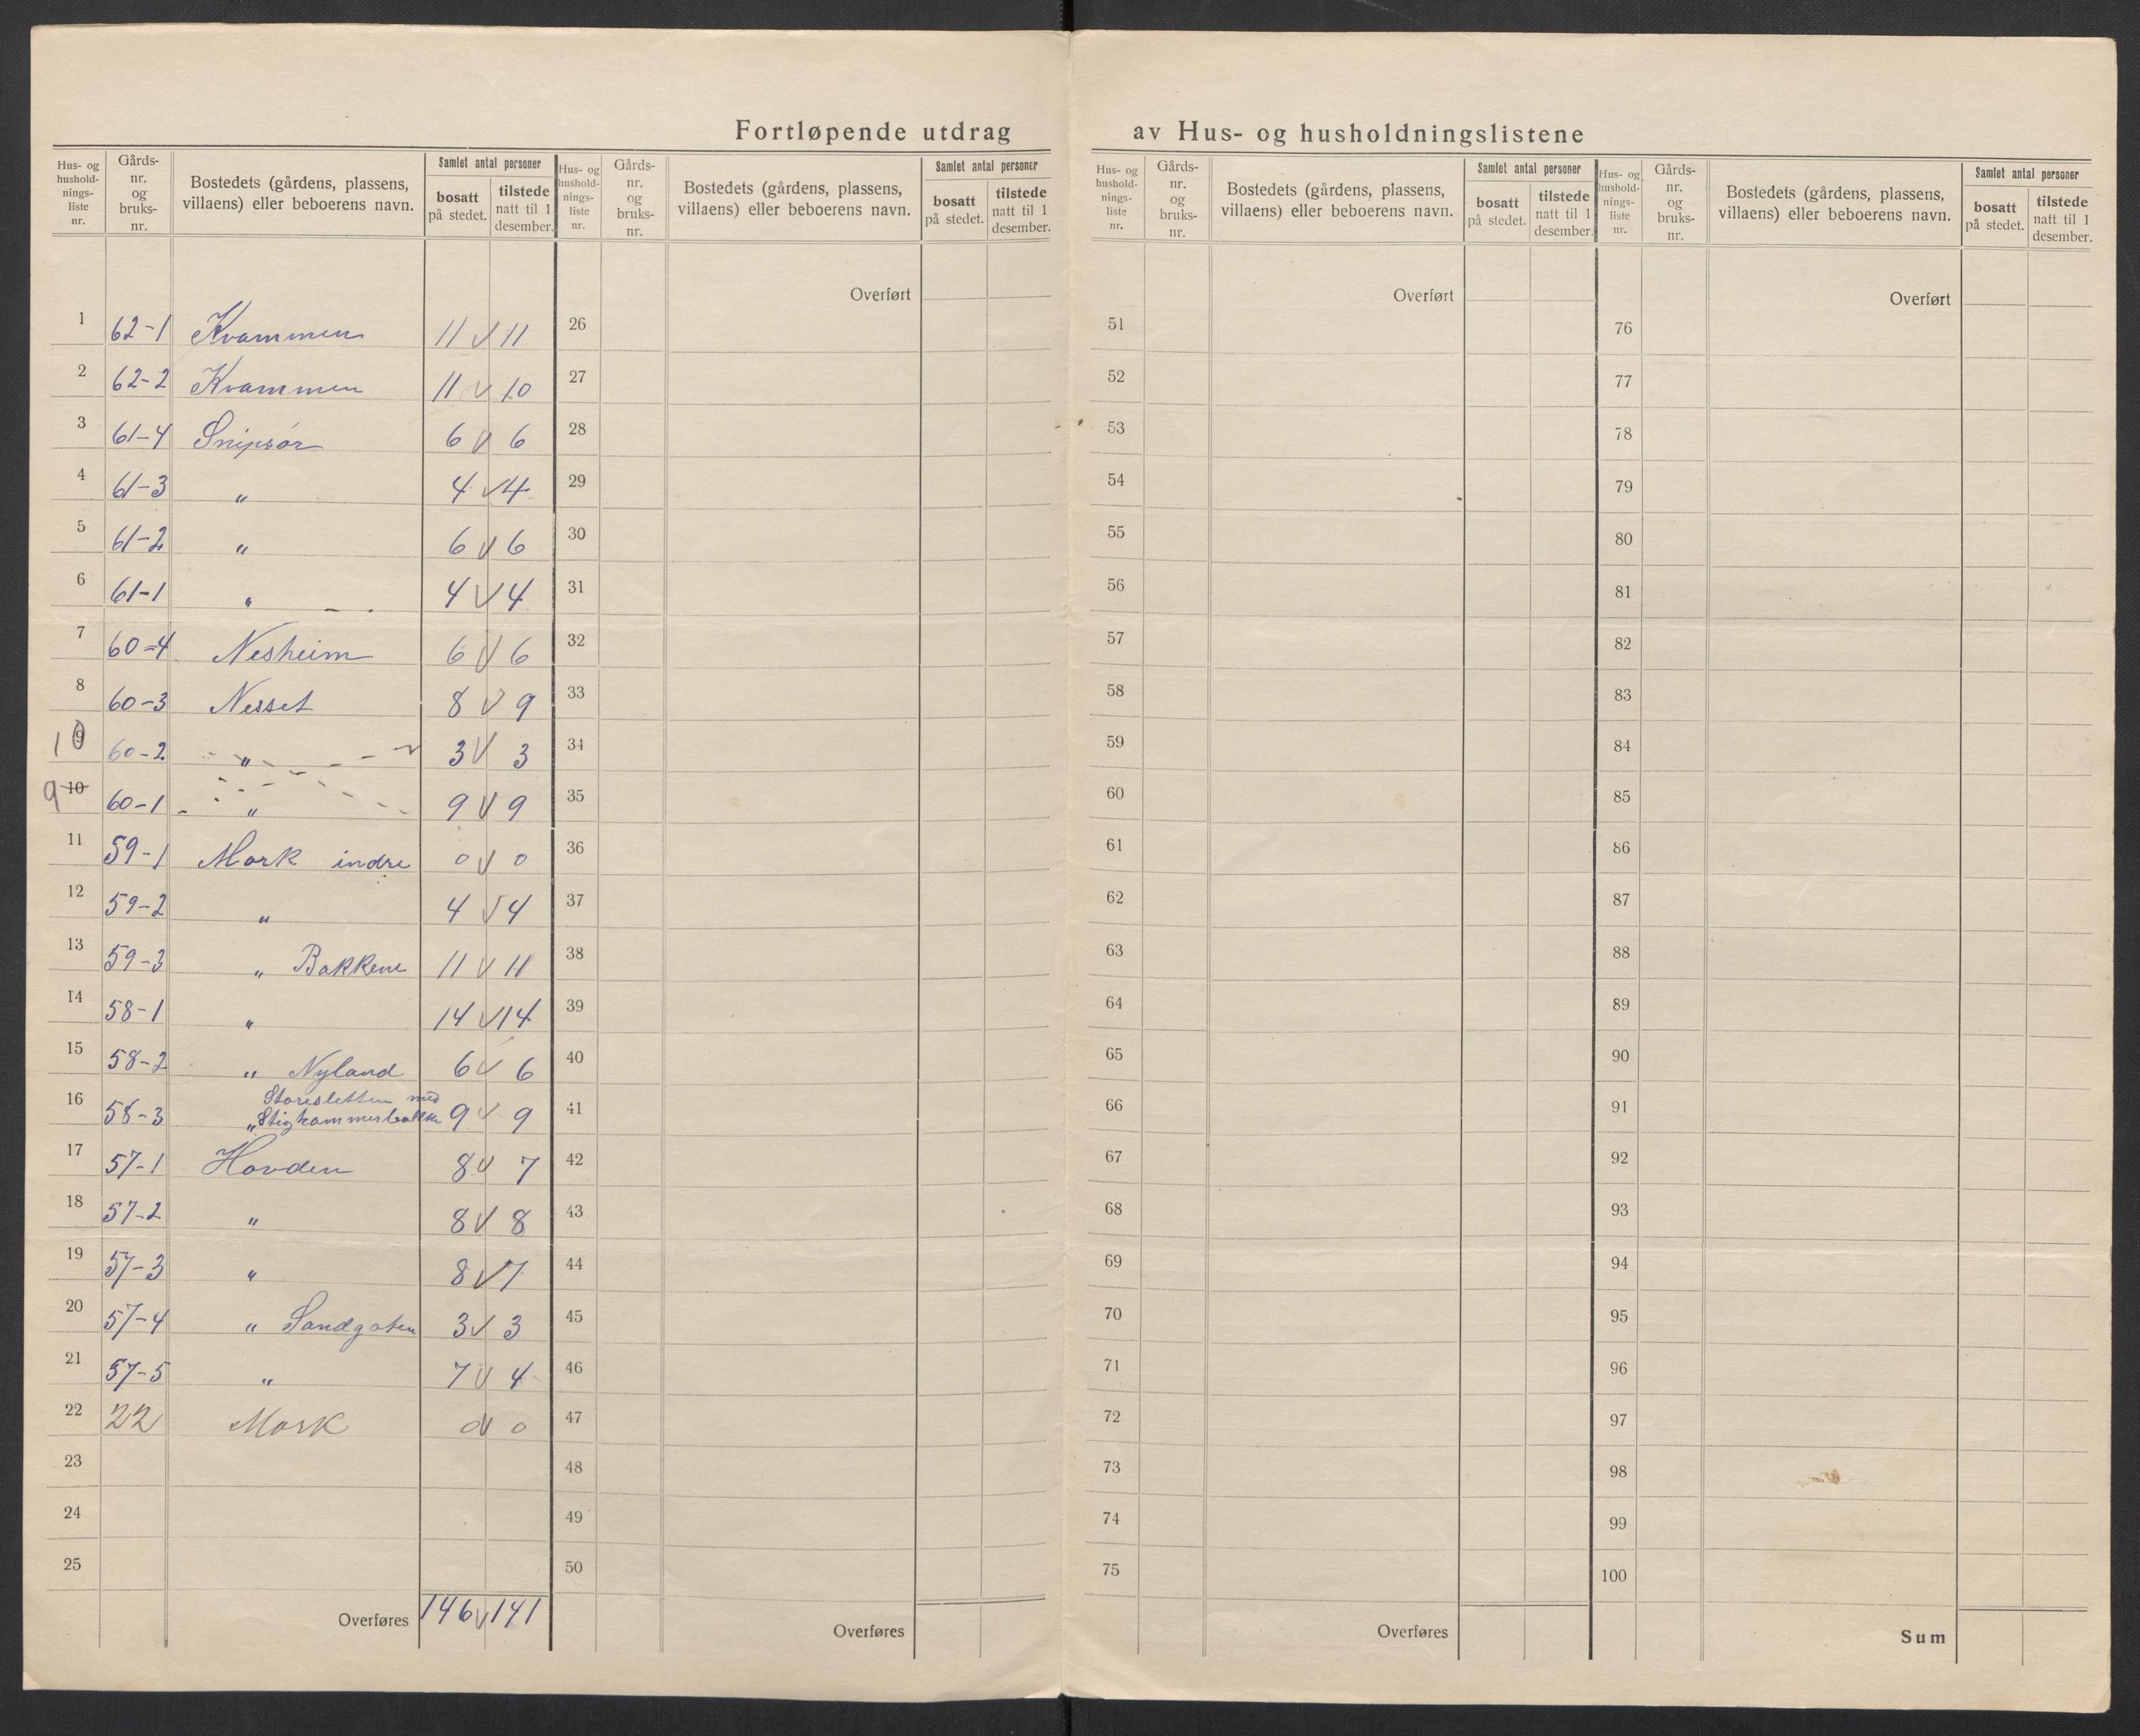 Fortløpende utdrag av Hus- og husholdningslistene
Hus- og hushold-nings-liste nr. Gårds-nr. og bruks-nr. Bostedets (gårdens, plassens, villaens) eller beboerens navn. Samlet antal personer bosatt på stedet. tilstede natt til 1 desember.
1 62-1 Kvammen 11 v 11
2 62-2 Kvammen 11 v 10
3 61-4 Snipsør 6 v 6
4 61-3 " 4 v 4
5 61-2 " 6 v 6
6 61-1 " 4 v 4
7 60-4 Nesheim 6 v 6
8 60-3 Nesset 8 v 9
10 9 60-2 " 3 v 3
9 10 60-1 " 9 v 9
11 59-1 Mork indre 0 v 0
12 59-2 " 4 v 4
13 59-3 " Bakkene 11 v 11
14 58-1 " 14 v 14
15 58-2 " Nyland 6 v 6
Storesletten med
16 58-3 " Stighammerbakke 9 v 9
17 57-1 Hovden 8 v 7
18 57-2 " 8 v 8
19 57-3 " 8 v 7
20 57-4 " Sandgaten 3 v 3
21 57-5 " 7 v 4
22 22 Mork 0 v 0
23
24
25
Overføres 146 v 141
Hus- og hushold-nings-liste nr. Gårds-nr. og bruks-nr. Bostedets (gårdens, plassens, villaens) eller beboerens navn. Samlet antal personer bosatt på stedet. tilstede natt til 1 desember.
Overført
26
27
28
29
30
31
32
33
34
35
36
37
38
39
40
41
42
43
44
45
46
47
48
49
50
Overføres
Hus- og hushold-nings-liste nr. Gårds-nr. og bruks-nr. Bostedets (gårdens, plassens, villaens) eller beboerens navn. Samlet antal personer bosatt på stedet. tilstede natt til 1 desember.
Overført
51
52
53
54
55
56
57
58
59
60
61
62
63
64
65
66
67
68
69
70
71
72
73
74
75
Overføres
Hus- og hushold-nings-liste nr. Gårds-nr. og bruks-nr. Bostedets (gårdens, plassens, villaens) eller beboerens navn. Samlet antal personer bosatt på stedet. tilstede natt til 1 desember.
Overført
76
77
78
79
80
81
82
83
84
85
86
87
88
89
90
91
92
93
94
95
96
97
98
99
100
Sum